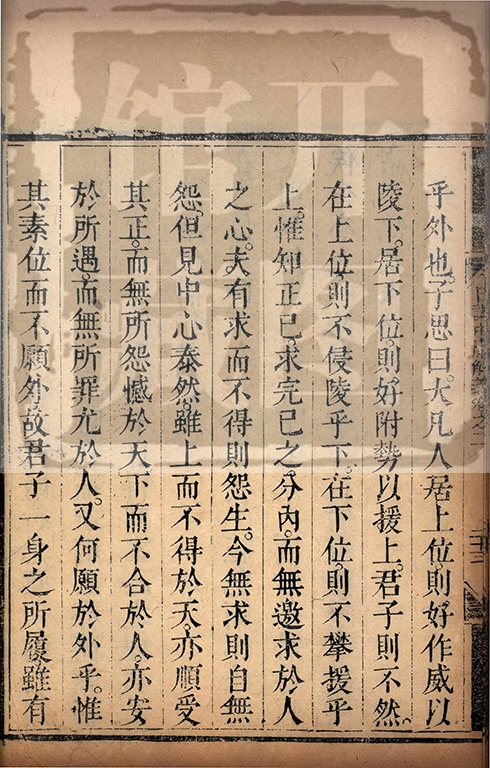 乎外也。子思曰。大凡人居上位。則好作威以
陵下。居下位。則好附勢以援上。君子則不然。
在上位。則不侵陵乎下。在下位。則不攀援乎
上。惟知正已。求完已之分內。而無邀求於人
之心。夫有求而不得則怨生。今無求則自無
怨。但見中心泰然。雖上而不得於天。亦順受
其正。而無所怨憾於天。下而不合於人。亦安
於所遇。而無所罪尤於人。又何願於外乎。惟
其素位而不願外。故君子一身之所履。雖有